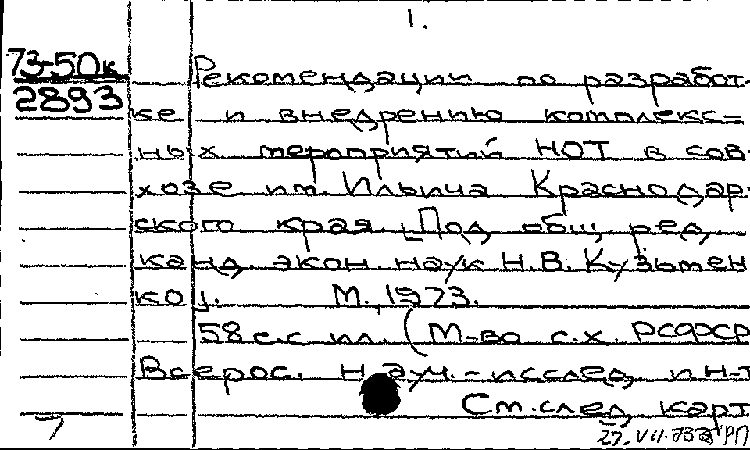 1.
73-50к
2893
Рекомендации по разработ-
ке и внедрению комплекс=
ных мероприятий НОТ в сов-
хозе им. Ильича Краснодар-
ского края. [Под общ. ред.
канд. экон. наук Н.В. Кузьмен
ко].
М., 1973.
58 с. с ил. (М-во с.х. РСФСР
Всерос. науч.-исслед. ин-т
См. след. карт